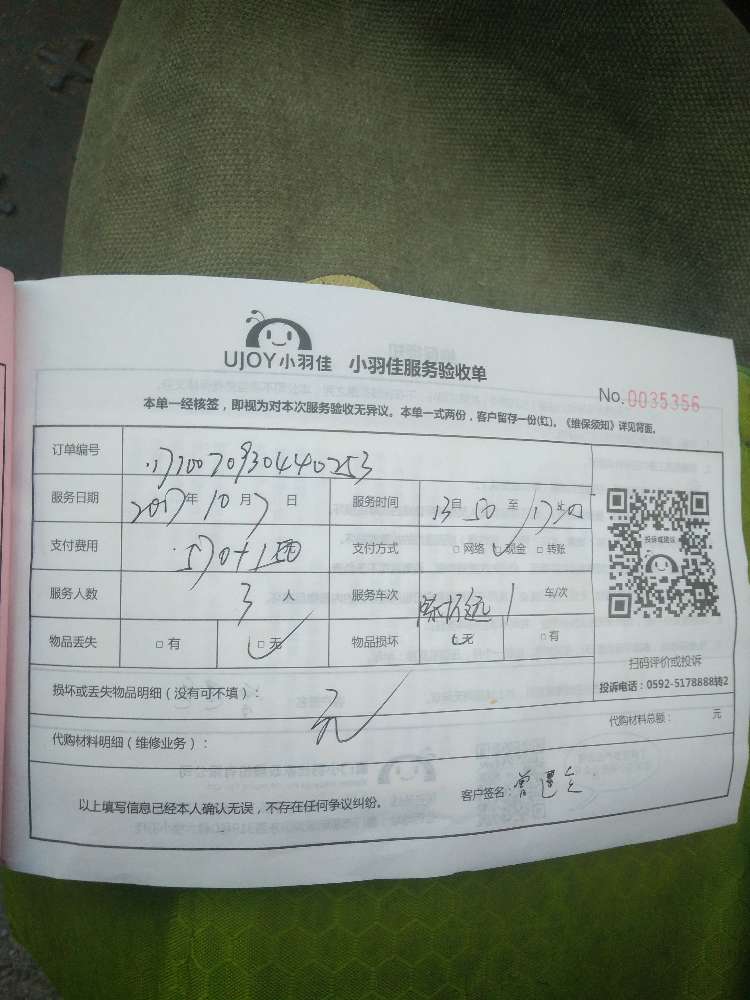 UJOY小羽佳 小羽佳服务验收单
No.0035356
本单一经核签，即视为对本次服务验收无异议。本单一式两份，客户留存一份(红)。《维保须知》详见背面。
订单编号
服务日期 2017年10月7日 服务时间 自 至
支付费用 570+150 支付方式 □网络 □现金 □转账
服务人数 3人 服务车次 1 车/次
物品丢失 □有 □无 物品损坏 □无 □有
投诉或建议
扫码评价或投诉
投诉电话：0592-5178888转2
损坏或丢失物品明细（没有可不填）： 无
代购材料总额： 元
代购材料明细（维修业务）：
以上填写信息已经本人确认无误，不存在任何争议纠纷。 客户签名：